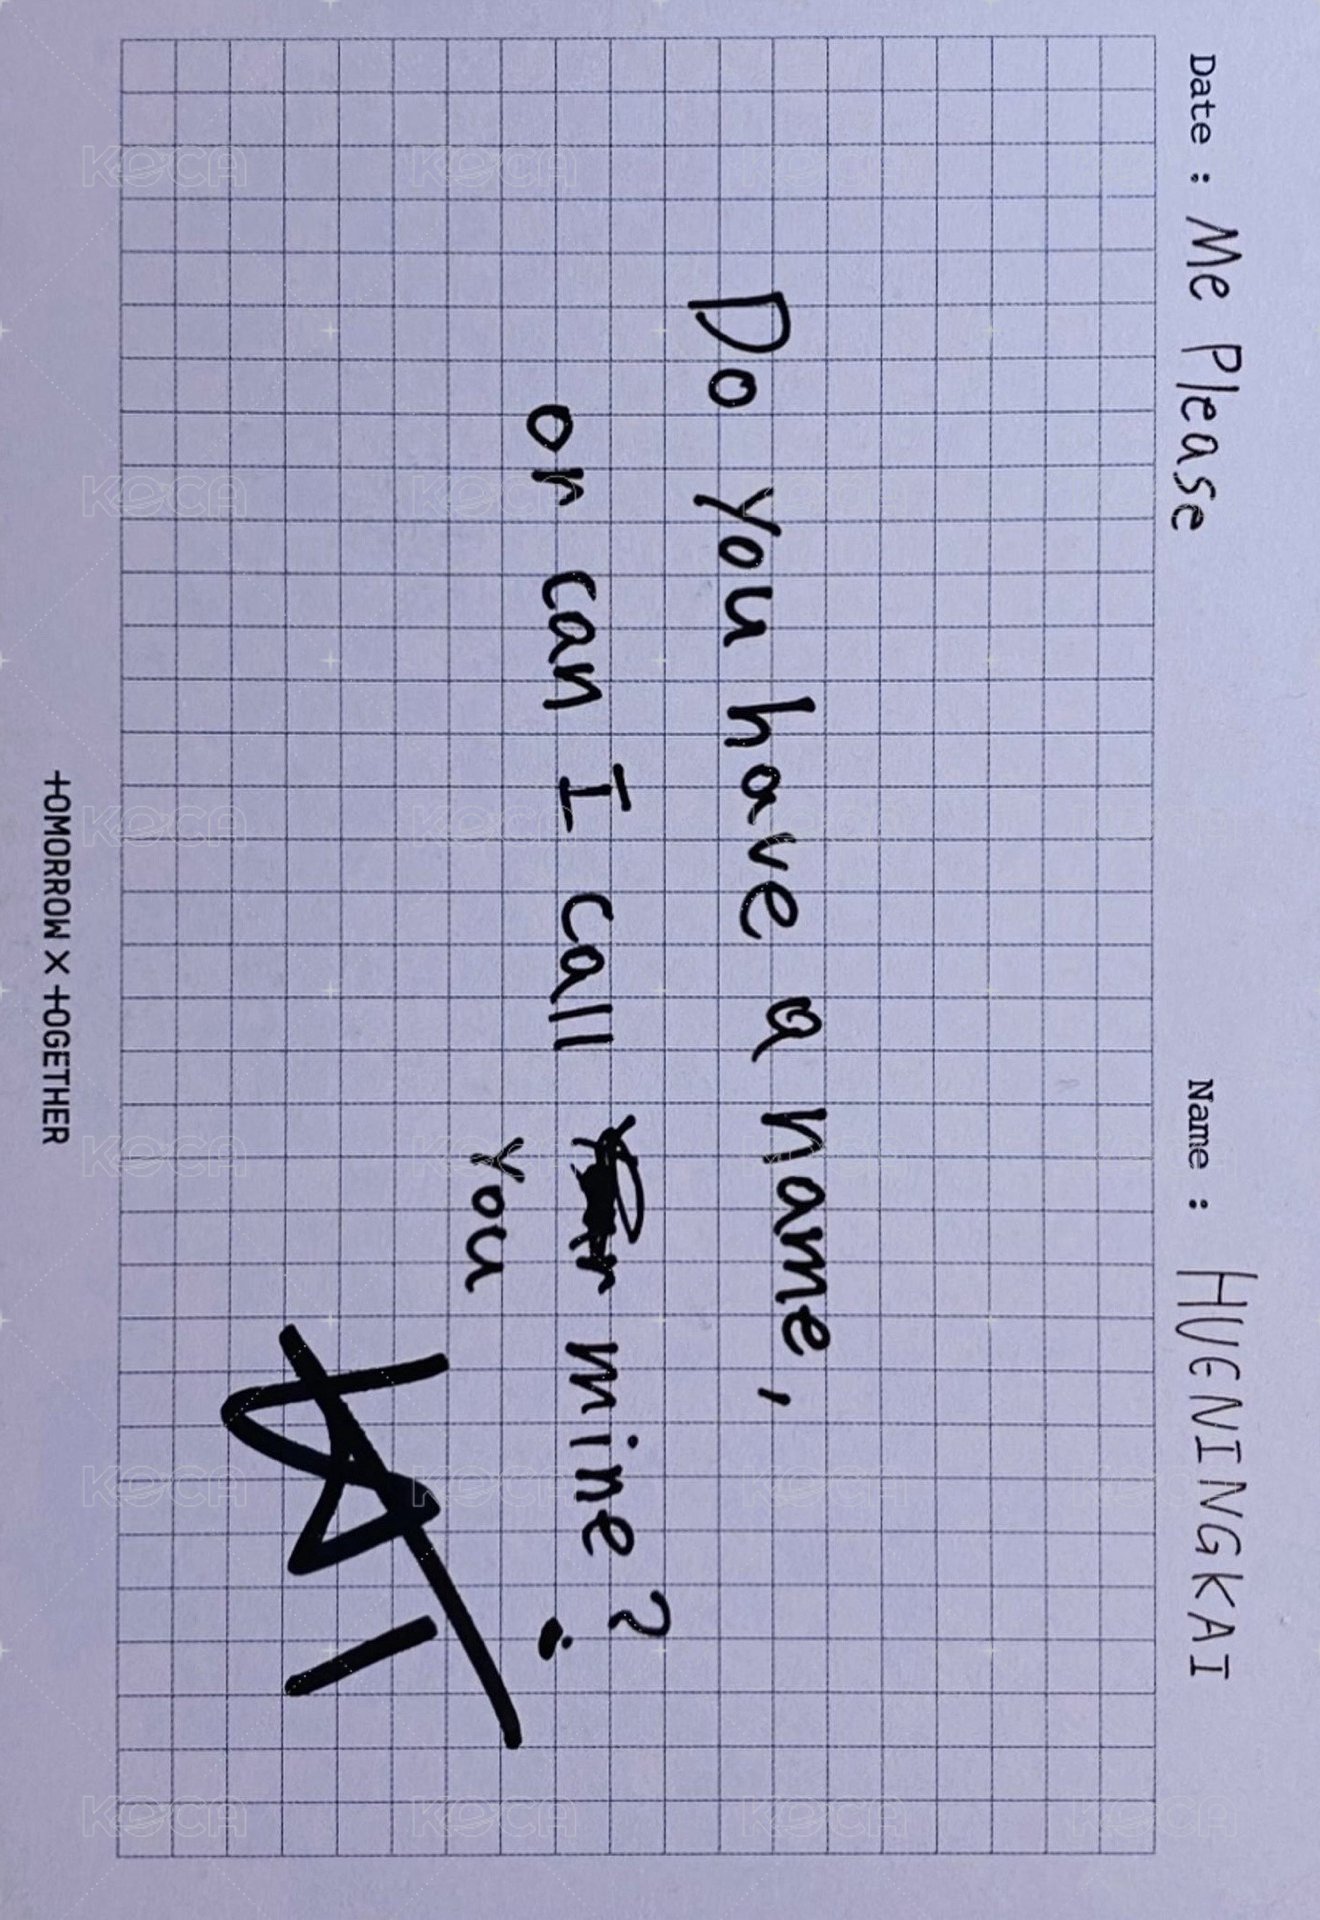 Date : Me Please
Name : HUENINGKAI
Do you have a name,
or can I call mine?
you
TOMORROW X TOGETHER
KOCA